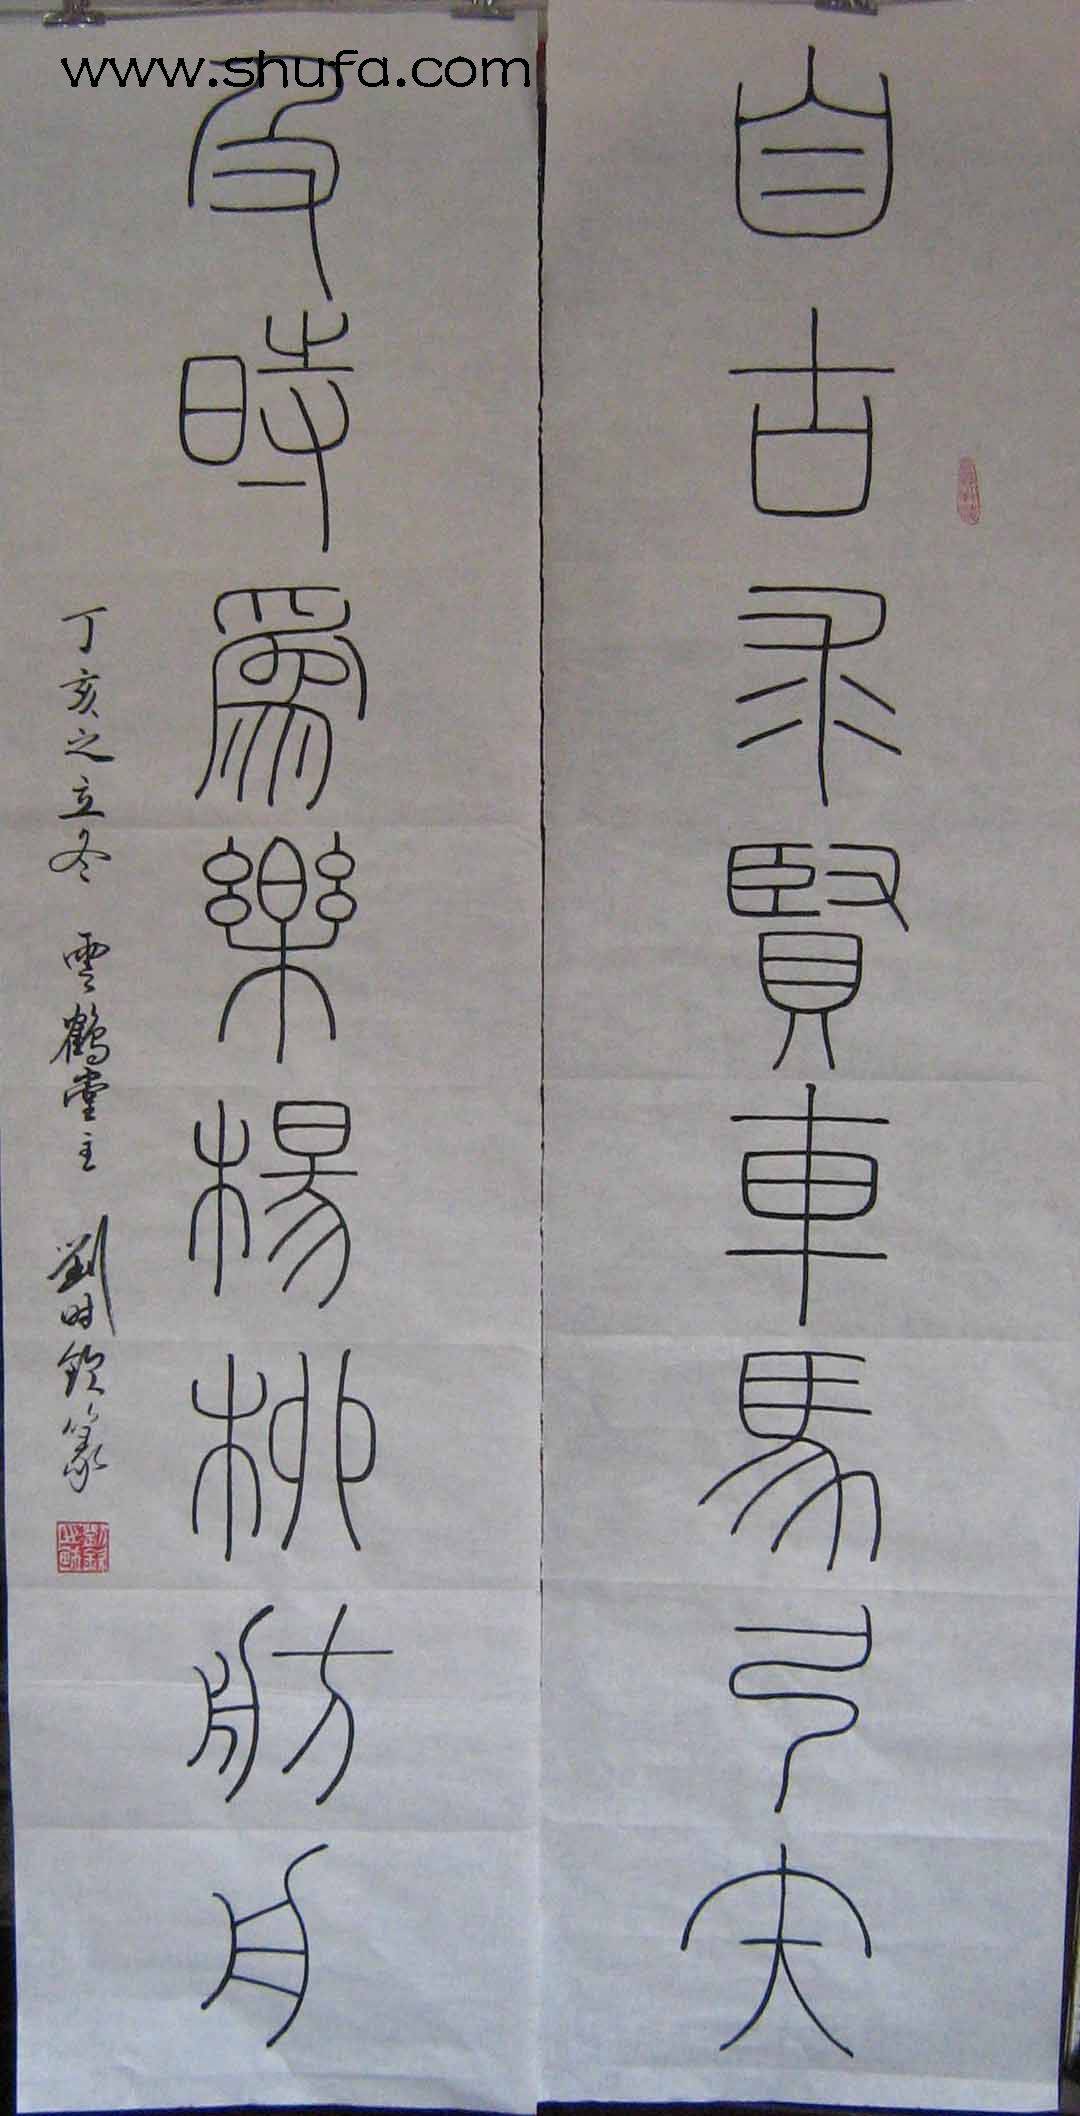 www.shufa.com
自古求賢車馬弓矢
及時爲樂楊柳舫舟
丁亥之立冬 雲鶴堂主 劉时欽篆